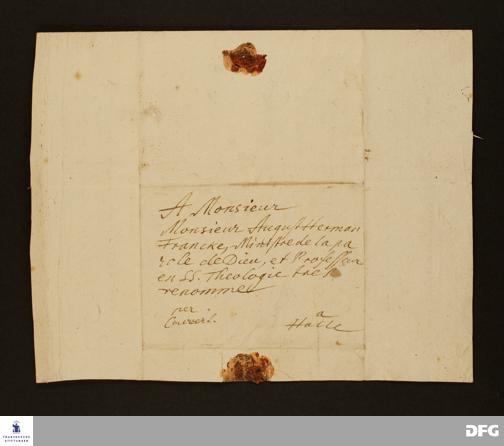 A Monsieur
Monsieur August Herman
Francke, Ministre de la pa
role de Dieu, et Professeur
en SS. Theologie tres
renommé
per
Couvert.
a
Halle
FRANCKESCHE
STIFTUNGEN
DFG